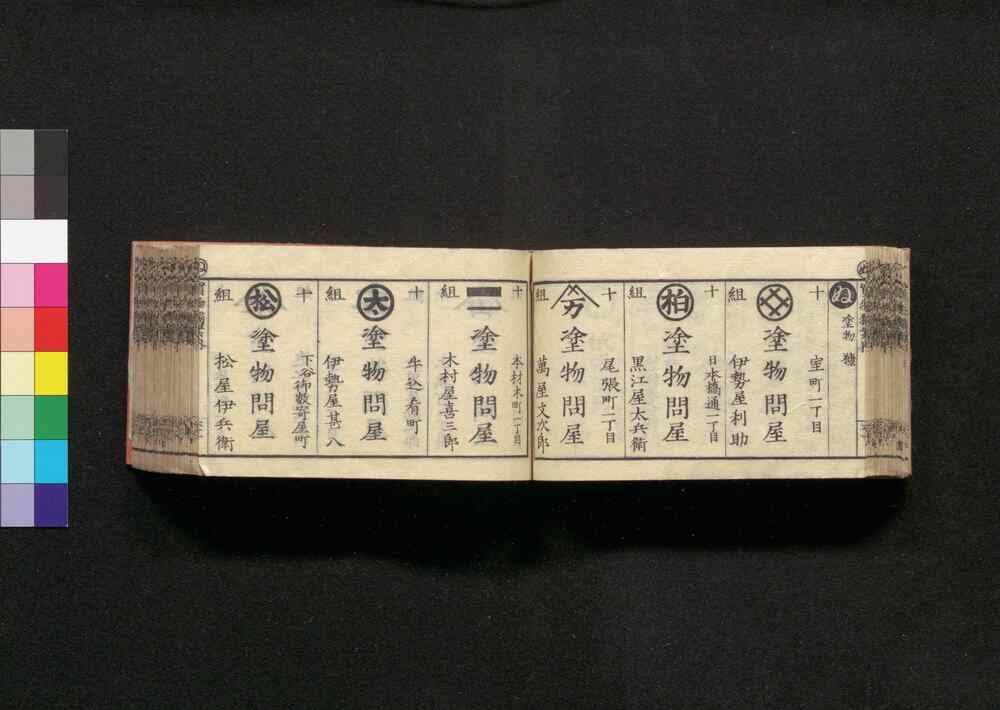 ぬ
塗物 糠
十組
室町一丁目
塗物問屋
伊勢屋利助
十組
柏
日本橋通一丁目
塗物問屋
黒江屋太兵衛
十組
万
尾張町一丁目
塗物問屋
萬屋文次郎
十組
本材木町一丁目
塗物問屋
木村屋喜三郎
十組
太
牛込肴町
塗物問屋
伊勢屋甚八
十組
松
下谷御数寄屋町
塗物問屋
松屋伊兵衛